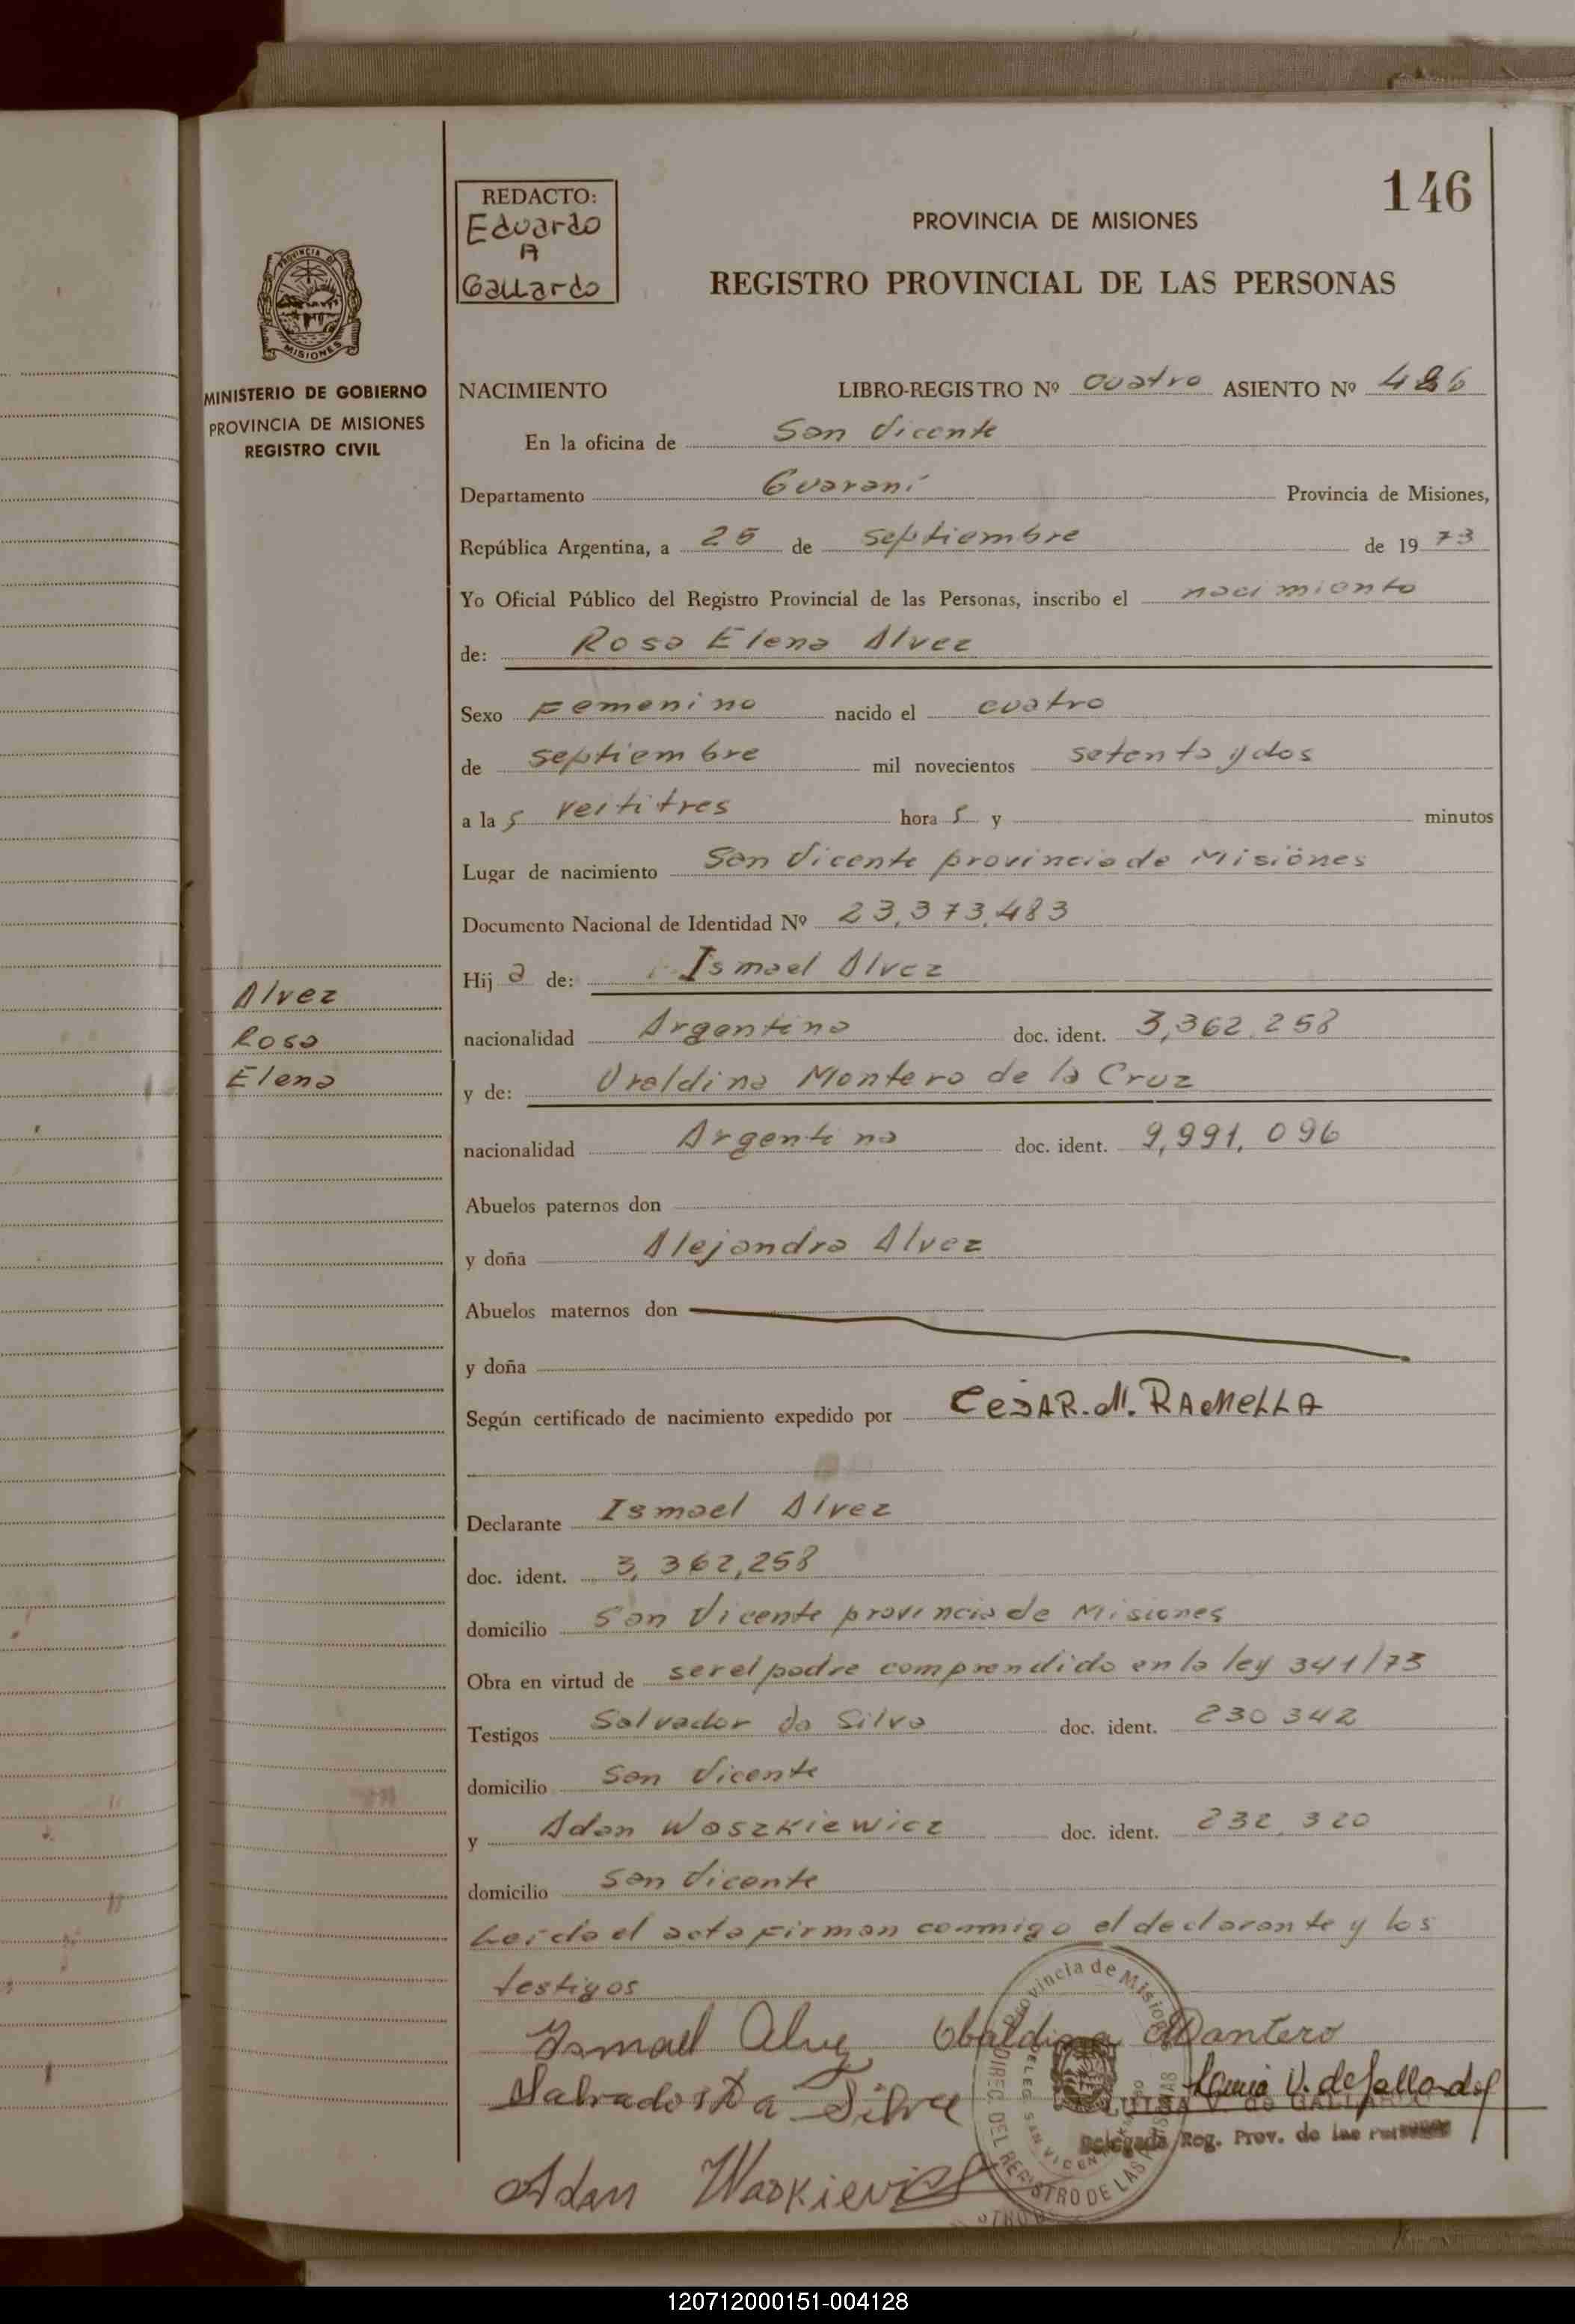 146
REDACTO:
Eduardo
A
Gallardo
PROVINCIA DE MISIONES
REGISTRO PROVINCIAL DE LAS PERSONAS
PROVINCIA DE
MISIONES
MINISTERIO DE GOBIERNO
PROVINCIA DE MISIONES
REGISTRO CIVIL
NACIMIENTO LIBRO-REGISTRO Nº cuatro ASIENTO Nº
En la oficina de San Vicente
Departamento Guaraní Provincia de Misiones,
República Argentina, a 25 de septiembre de 19 73
Yo Oficial Público del Registro Provincial de las Personas, inscribo el nacimiento
de: Rosa Elena Alvez
Sexo Femenino nacido el cuatro
de septiembre mil novecientos setenta y dos
a las veititres horas y minutos
Lugar de nacimiento San Vicente provincia de Misiones
Documento Nacional de Identidad Nº 23,373,483
Hija de: Ismael Alvez
nacionalidad Argentina doc. ident. 3,362,258
y de: Montero de la Cruz
nacionalidad Argentina doc. ident. 9,991,096
Abuelos paternos don
y doña Alejandra Alvez
Abuelos maternos don
y doña
Según certificado de nacimiento expedido por CESAR. M. RAMELLA
Declarante Ismael Alvez
doc. ident. 3,362,258
domicilio San Vicente provincia de Misiones
Obra en virtud de ser el padre comprendido en la ley 341/73
Testigos Salvador da Silva doc. ident. 230 342
domicilio San Vicente
y Adan Woszkiewicz doc. ident. 232,320
domicilio San Vicente
Leída el acta firman conmigo el declarante y los
testigos
Ismael Alvez Ubaldina Montero
Salvador Da Silva
LUISA V. de GALLARDO
Delegada Reg. Prov. de las Personas
Adan
Alvez
Rosa
Elena
120712000151-004128